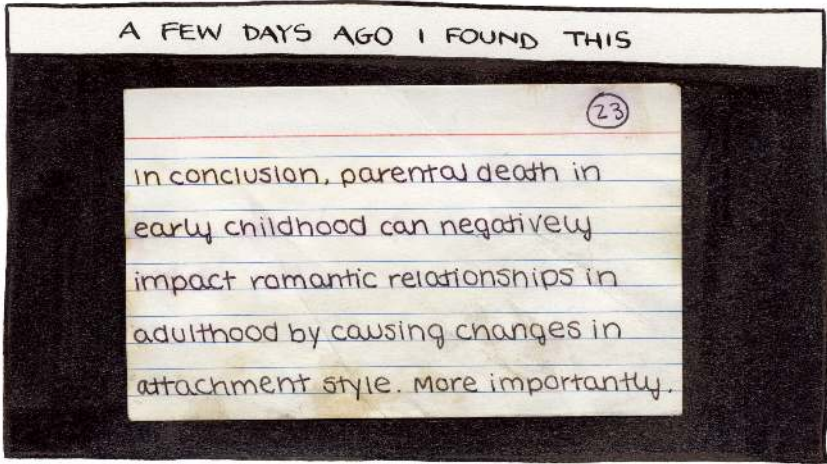 A FEW DAYS AGO I FOUND THIS
23
In conclusion, parental death in
early childhood can negatively
impact romantic relationships in
adulthood by causing changes in
attachment style. More importantly.